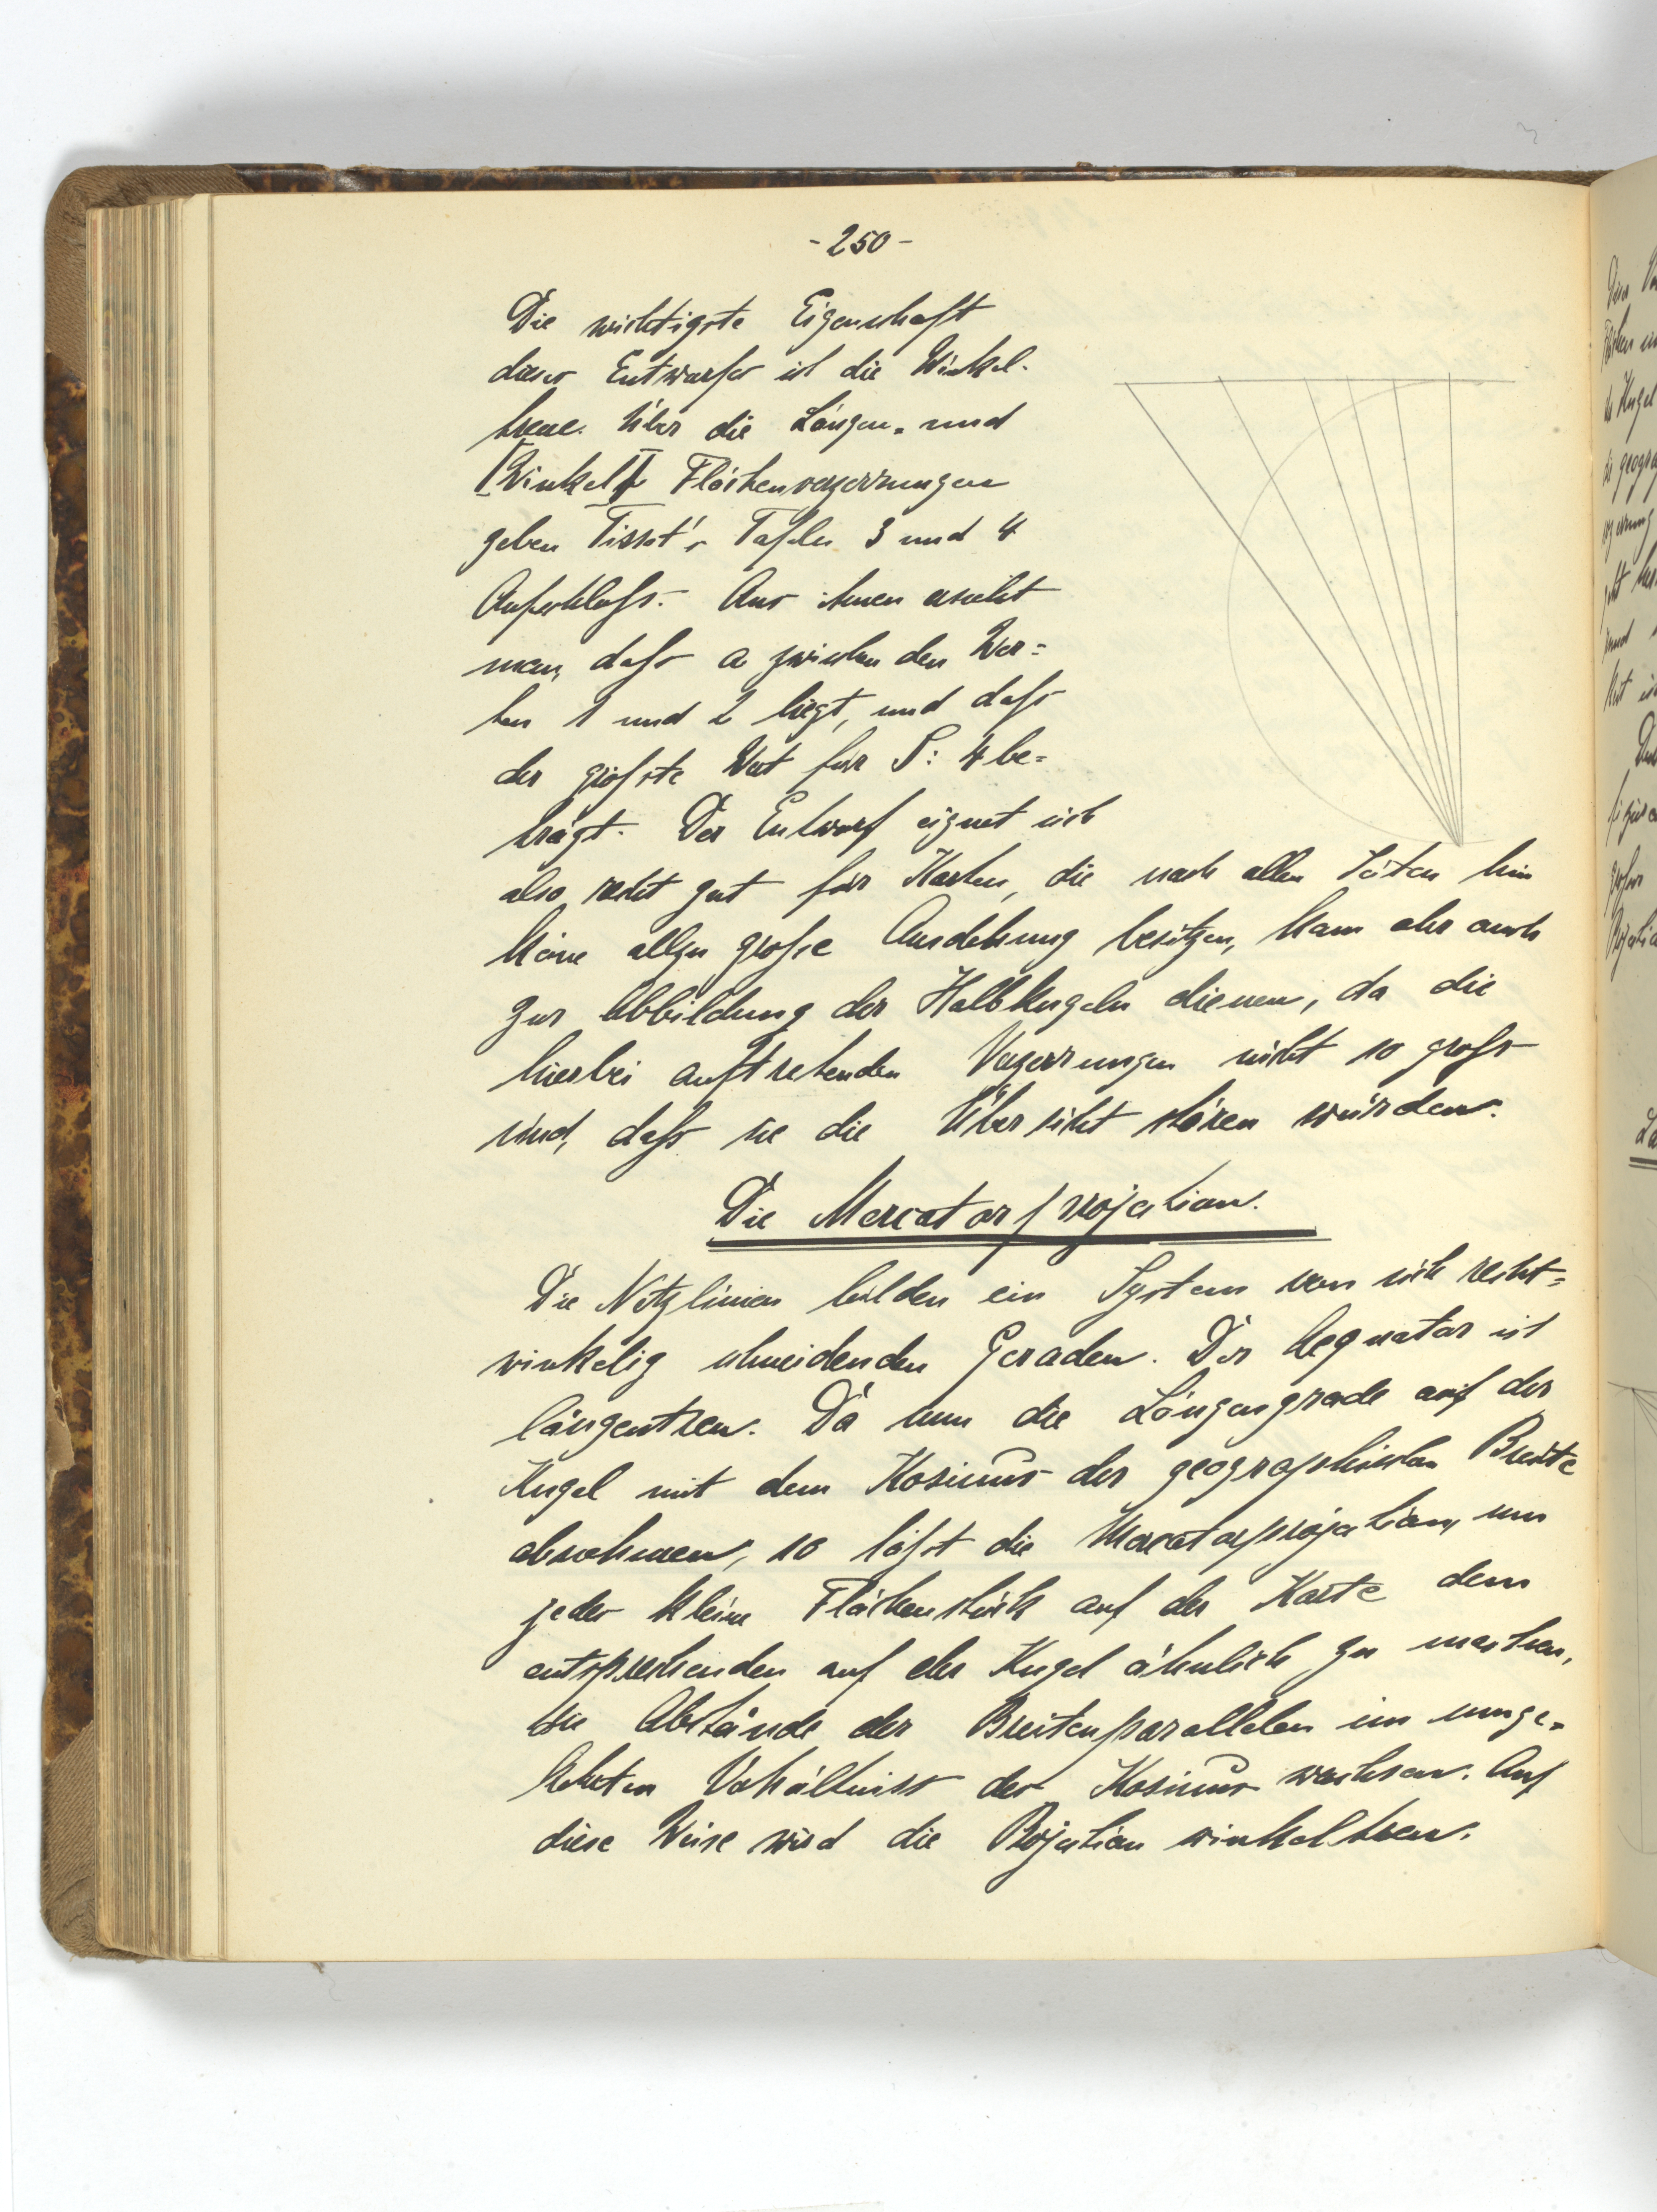 - 250 -
Die wichtigste Eigenschaft
dieses Entwurfes ist die Winkel-
treue. Über die Längen- und
[Winkel] Flächenverzerrungen
geben Tissot's Tafeln 3 und 4
Aufschluss. Aus ihnen ersieht
man, dass a zwischen den Wer=
ten 1 und 2 liegt, und dass
der grösste Wert für S: 4 be=
trägt. Der Entwurf eignet sich
also recht gut für Karten, die nach allen Seiten hin
keine allzu grosse Ausdehnung besitzen, kann aber auch
zur Abbildung der Halbkugeln dienen, da die
hierbei auftretenden Verzerrungen nicht so gross
sind, dass sie die Übersicht stören würden.
Die Mercatorprojection.
Die Netzlinien bilden ein System von sich recht=
winkelig schneidenden Geraden. Der Aequator ist
längentreu. Da nun die Längengrade auf der
Kugel mit dem Kosinus der geographischen Breite
abnehmen, so lässt die Mercatorprojection, um
jedes kleine Flächenstück auf der Karte dem
entsprechenden auf der Kugel ähnlich zu machen,
die Abstände der Breitenparallelen im umge=
kehrten Verhältniss des Kosinus wachsen. Auf
diese Weise wird die Projection winkeltreu.